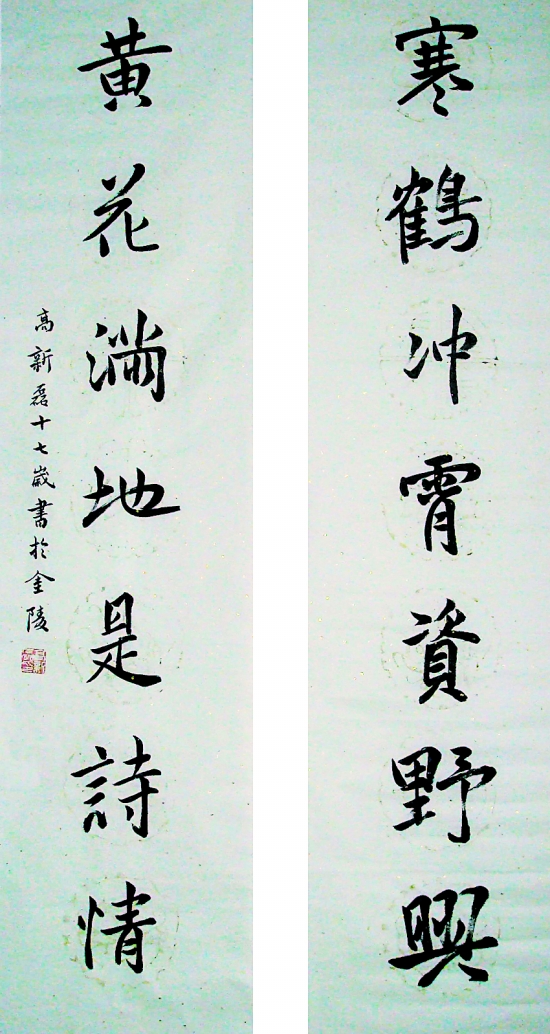 寒鶴冲霄資野興
黄花滿地是詩情
高新磊十七歲書於金陵